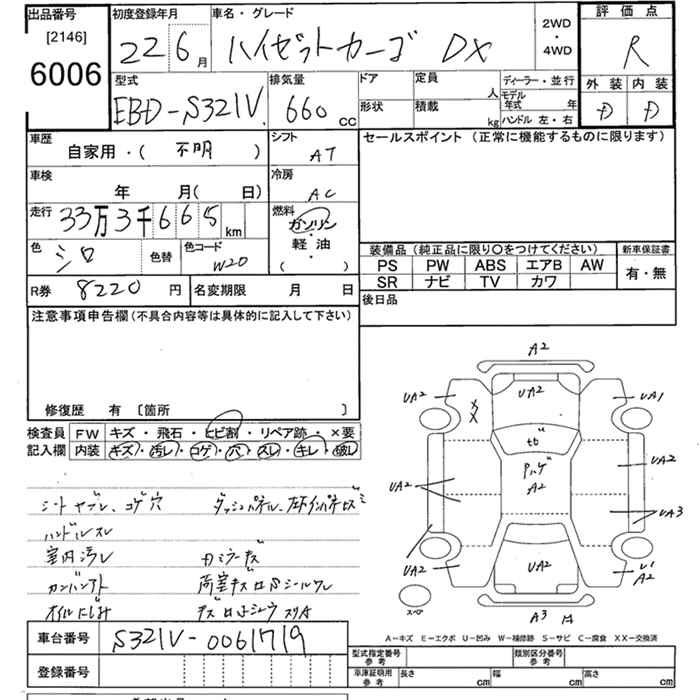 出品番号 初度登録年月 車名・グレード 2WD ・ 4WD 評価点
[2146]
6006 22 6月 ハイゼットカーゴ DX R
型式 排気量 ドア 定員 人 ディーラー・並行 外装 内装
EBD-S321V 660cc 形状 積載 kg モデル年式 年 ハンドル 左・右 D D
車歴 自家用・( 不明 ) シフト AT セールスポイント (正常に機能するものに限ります)
車検 年 月( 日) 冷房 AC
走行 33万3千665km 燃料 ガソリン・軽油 ( )
色 シロ 色替 色コード W20
装備品 (純正品に限り○をつけてください) 新車保証書
PS PW ABS エアB AW 有・無
SR ナビ TV カワ
R券 8220円 名変期限 月 日 後日品
注意事項申告欄 (不具合内容等は具体的に記入して下さい)
修復歴 有 〔箇所 〕
検査員 FW キズ・飛石・ヒビ割・リペア跡・×要
記入欄 内装 キズ・汚レ・コゲ・穴・スレ・キレ・破レ
シートヤブレ、コゲ穴
ハンドルスレ
室内汚レ
オイルにじみ
A2
UA2 UA2 UA1
XX
UA2 A2 UA2
UA3
UA2 UA2 A2
スペア A3
A－キズ E－エクボ U－凹み W－補修跡 S－サビ C－腐食 XX－交換済
車台番号 S321V-0061719
登録番号
型式指定番号 参考 類別区分番号 参考
車庫証明用 参考 長さ cm 幅 cm 高さ cm